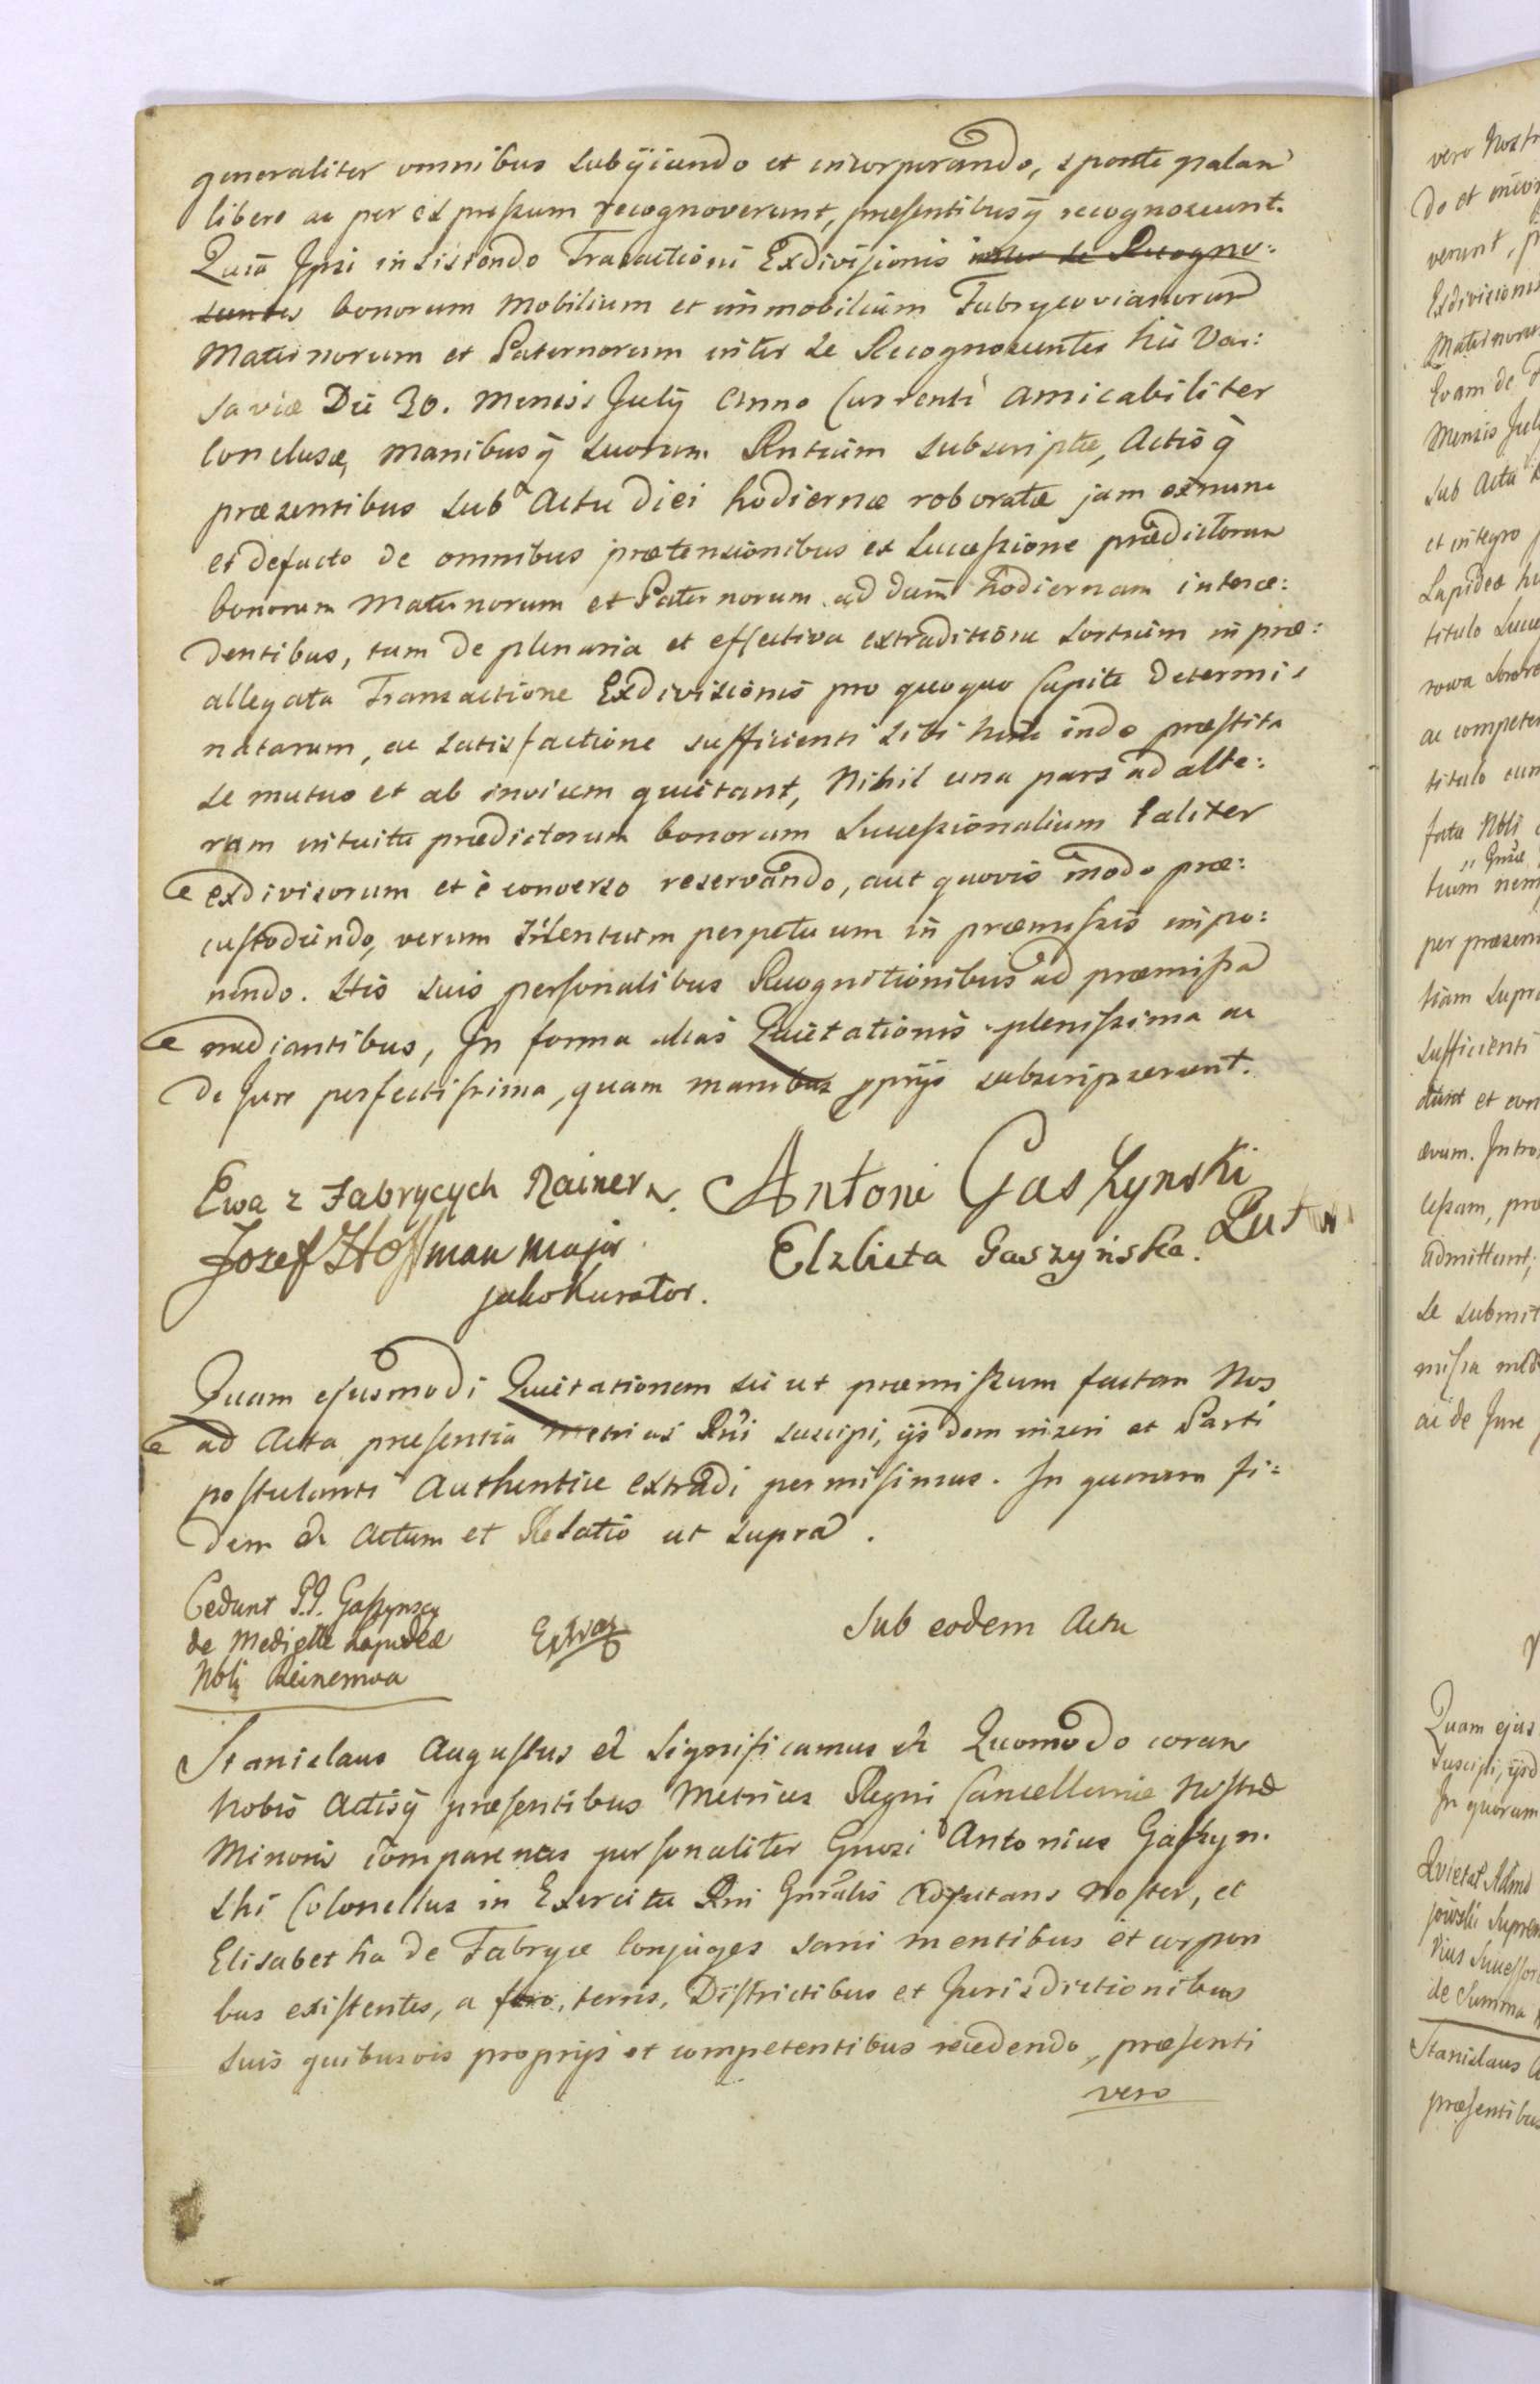 generaliter omnibus subijciendo et incorporando, sponte palam
libere ac per expressum recognoverunt, præsentibusq̃ recognoscunt.
Quia Ipsi insistendo Transactioni Exdivisionis inter se Recogno:
scentes bonorum Mobilium et immobilium Fabrycovianorum
Maternorum et Paternorum inter se Recognoscentes hic Var:
saviæ Die 30. Mensis Julij Anno Currenti amicabiliter
conclusæ, manibusq̃ suorum Rntium subscriptæ, Actisq̃
præsentibus sub Actu diei hodiernæ roboratæ jam exnunc
et defacto de omnibus prætensionibus ex Successione prædictorum
bonorum Maternorum et Paternorum ad diem hodiernam interce:
dentibus, tum de plenaria et effectiva extraditione Sortium in præ:
allegata Transactione Exdivisionis pro quoquo Capite determi:
natarum, ac satisfactione sufficienti sibi hinc inde præstita
se mutuo et ab invicem quietant, Nihil una pars ad alte:
ram intuitu prædictorum bonorum Successionalium taliter
exdivisorum et è converso reservando, aut quovis modo præ:
custodiendo, verum silentium perpetuum in præmissis impo:
nendo. His suis personalibus Recognitionibus ad præmissa
mediantibus, In forma alias Quietationis plenissima ac
de Jure perfectissima, quam manibus pprijs subscripserunt.
Ewa z Fabrycych Rainer
Antoni Gaszynski
Put
Jozef Hoffman major
Elzbieta Gaszyńska.
jako Kurator.
Quam ejusmodi Quietationem sic ut præmissum factam Nos
ad Acta præsentia Metrices Rni suscipi, ijsdem inseri et Parti
postulanti Authentice extradi permisimus. In quorum fi:
dem &c Actum et Relatio ut supra.
Cedunt P.P. Gaszynscy
de Medjette Lapideæ
Nobi Reinerowa
Sub eodem Actu
Stanislaus Augustus &c Significamus &c Quomodo coram
Nobis Actisq̃ præsentibus Metrices Regni Cancellariæ Nostræ
Minoris comparentes personaliter Gnosi Antonius Gaszyn.
ski Colonellus in Exercitu Rni Gnralis Adjutans Noster, et
Elisabetha de Fabryce Conjuges sani mentibus et corpori
bus existentes, a foro, terris, Districtibus et Jurisdictionibus
suis quibusvis proprijs et competentibus recedendo, præsenti
vero
vero Nostr
verunt, p
Exdivisionis
Maternorum
Evam de F
Mensis Juli
sub Actu
et integro
Lapideæ
titulo Succe
ac competen
titulo
per præsen
tiam supra
sufficienti
ævum. Intro
admittunt,
se submit
missa med
ac de Jure
Quam ejus
suscipi, ijsd
In quorum
Quietat
de Summa
Stanislaus
præsentibus